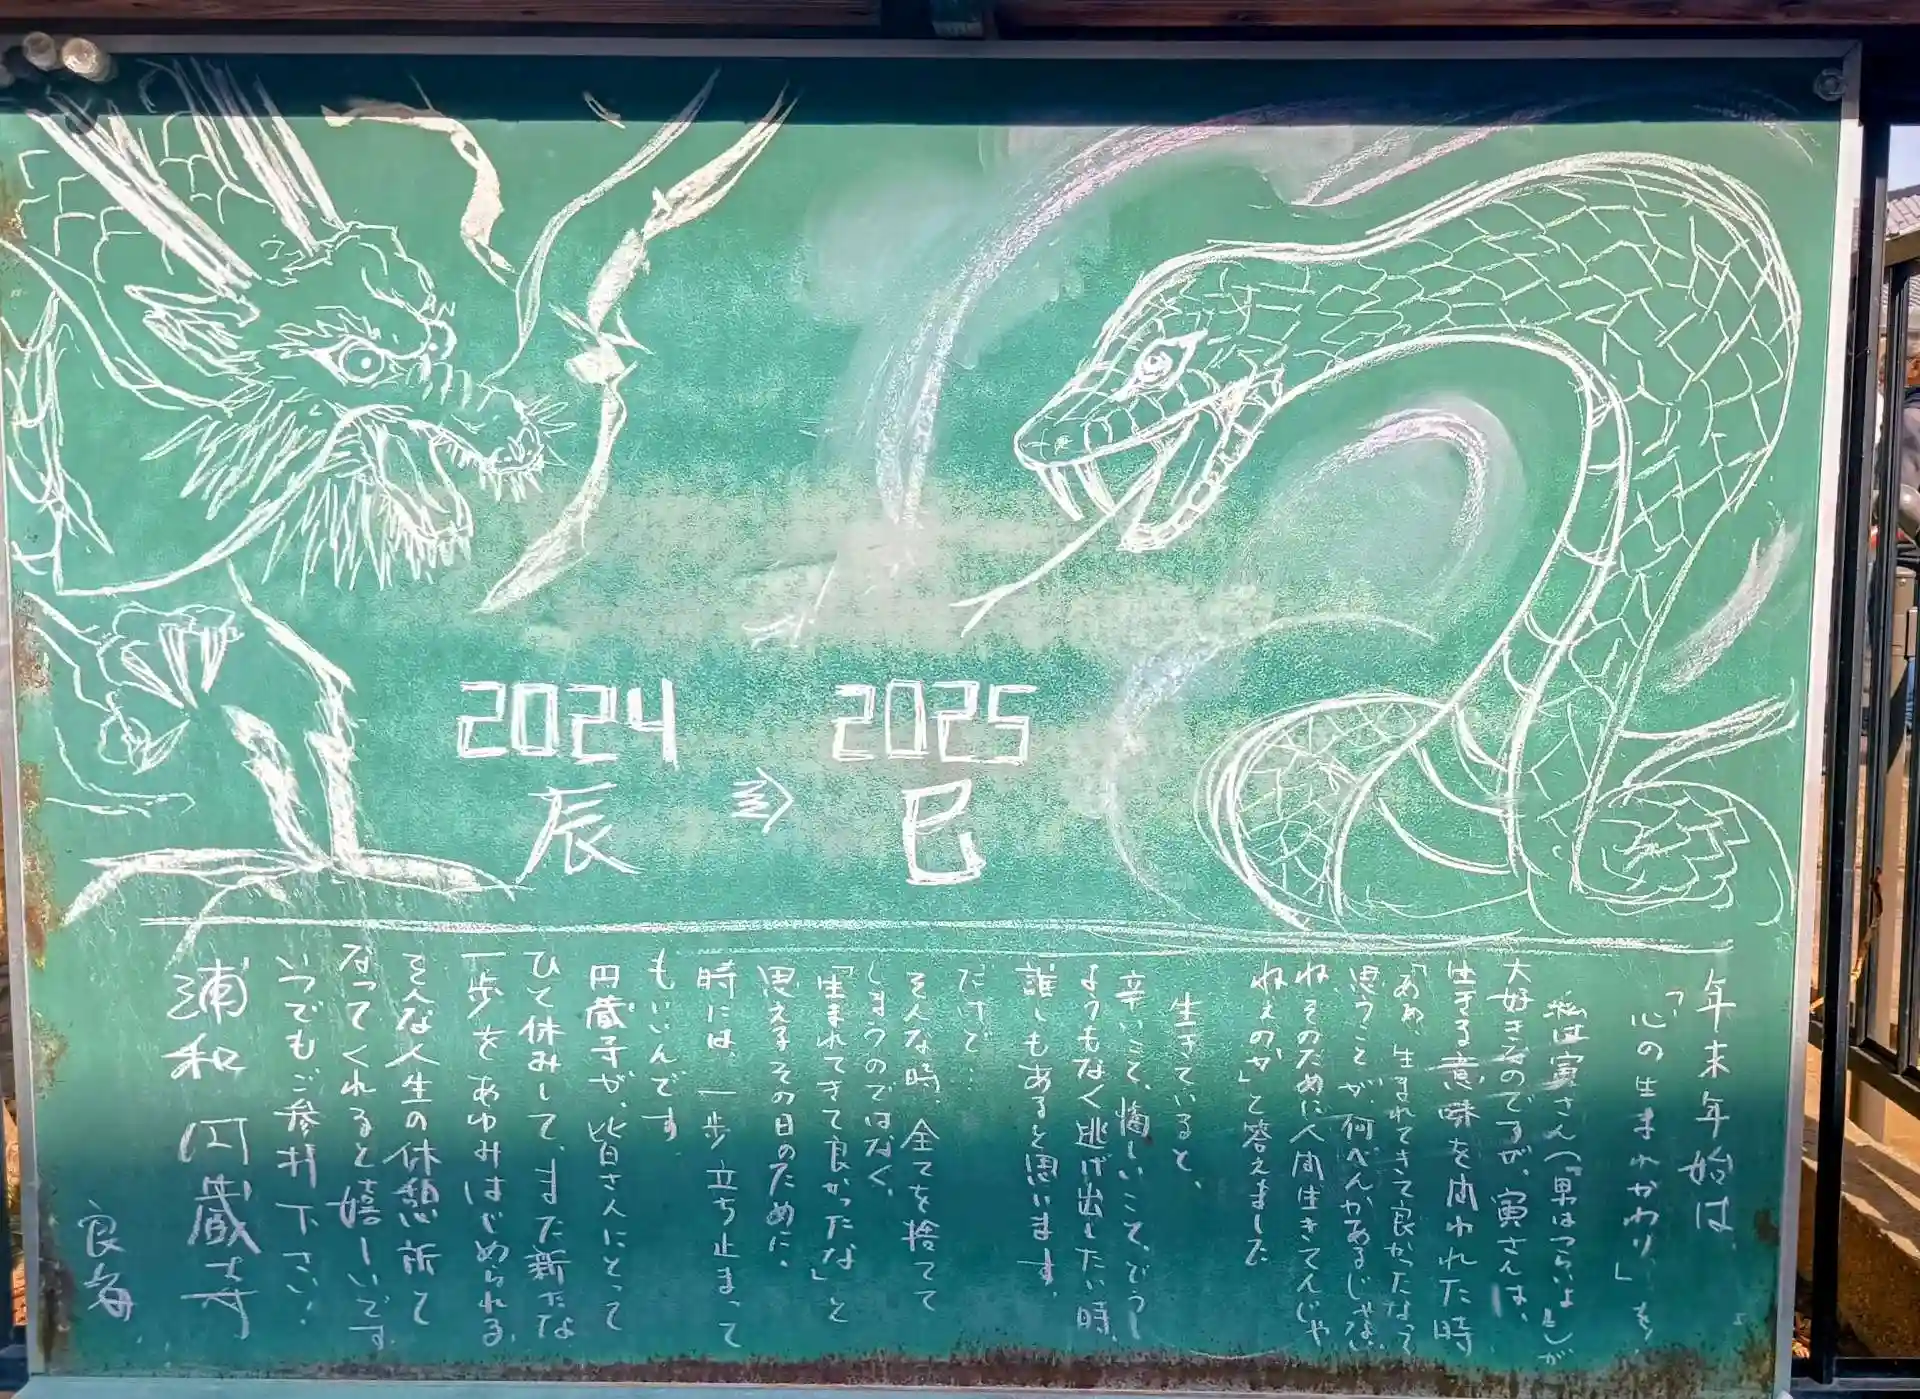 2024
辰
⇒
2025
巳
年末年始は、
「心の生まれかわり」を!
私は寅さん(『男はつらいよ』)が
大好きなのですが、寅さんは、
生きる意味を問われた時
「あぁ、生まれてきて良かったなって
思うことが何べんかあるじゃない
ね、そのために人間生きてんじゃ
ねぇのか」と答えました
生きていると、
辛いこと、悔しいこと、どうし
ようもなく逃げ出したい時、
誰しもあると思います。
だけど…
そんな時、全てを捨てて
しまうのではなく、
「生まれてきて良かったな」と
思えるその日のために、
時には、一歩立ち止まって
もいいんです
円蔵寺が、皆さんにとって
ひと休みして、また新たな
一歩をあゆみはじめられる、
そんな人生の休憩所で
なってくれると嬉しいです
いつでもご参拝下さい!
浦和 円蔵寺
良海